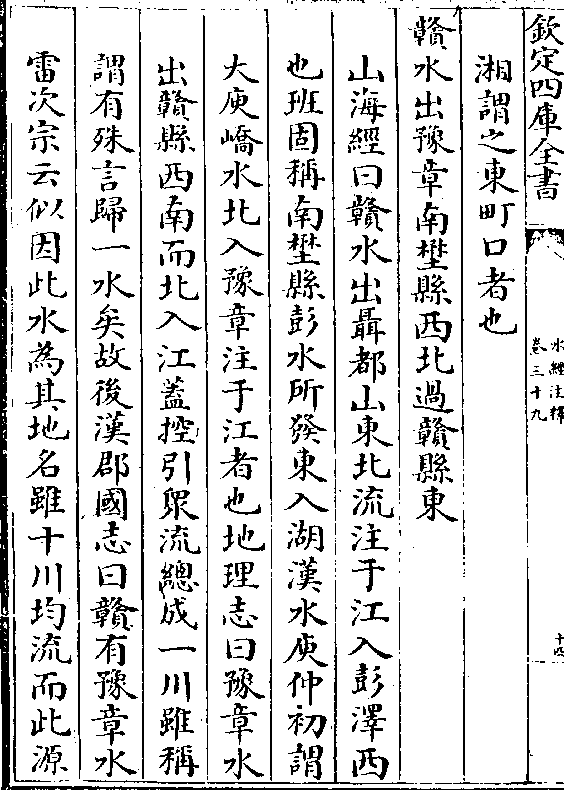 欽定四庫全書
水經注釋
卷三十九
十四
湘謂之東町口者也
贛水出豫章南壄縣西北過贛縣東
山海經曰贛水出聶都山東北流注于江入彭澤西
也班固稱南壄縣彭水所發東入湖漢水庾仲初謂
大庾嶠水北入豫章注于江者也地理志曰豫章水
出贛縣西南而北入江蓋控引眾流總成一川雖稱
謂有殊言歸一水矣故後漢郡國志曰贛有豫章水
雷次宗云似因此水為其地名雖十川均流而此源